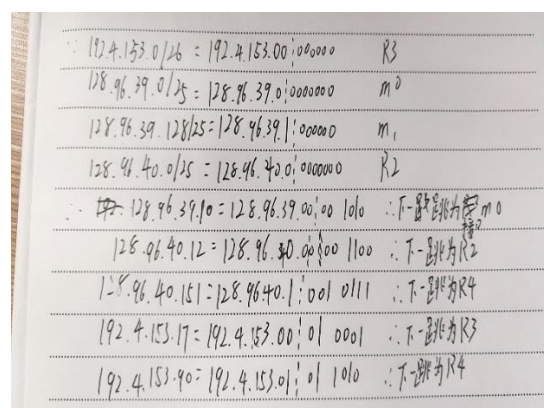 ∵ 192.4.153.0/26 = 192.4.153.00¦000000 R3
128.96.39.0/25 = 128.96.39.0¦0000000 m0
128.96.39.128/25 = 128.96.39.1¦00000 m1
128.96.40.0/25 = 128.96.40.0¦000000 R2
∴ 128.96.39.10 = 128.96.39.00¦00 1010 ∴下一跳为接口m0
128.96.40.12 = 128.96.40.00¦00 1100 ∴下一跳为R2
128.96.40.151 = 128.96.40.1¦001 0111 ∴下一跳为R4
192.4.153.17 = 192.4.153.00¦01 0001 ∴下一跳为R3
192.4.153.90 = 192.4.153.01¦01 1010 ∴下一跳为R4